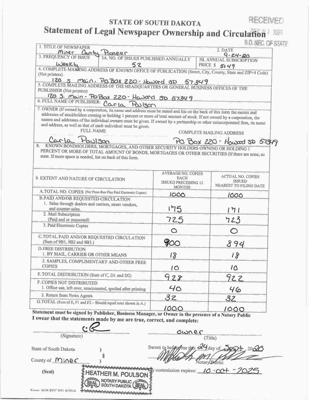 STATE OF SOUTH DAKOTA
RECEIVED
Statement of Legal Newspaper Ownership and Circulation
S.D. SEC. OF STATE
1. TITLE OF NEWSPAPER
Miner County Pioneer
2. DATE
9-24-20
3. FREQUENCY OF ISSUE
Weekly
3A. NO. OF ISSUES PUBLISHED ANNUALLY
52
3B. ANNUAL SUBSCRIPTION
PRICE $
4. COMPLETE MAILING ADDRESS OF KNOWN OFFICE OF PUBLICATION (Street, City, County, State and ZIP+4 Code)
(Not printers)
120 S. Main, PO Box 220 - Howard SD 57349
5. COMPLETE MAILING ADDRESS OF THE HEADQUARTERS OR GENERAL BUSINESS OFFICES OF THE
PUBLISHER (Not printers)
120 S Main - Po Box 220 - Howard SD 57349
6. FULL NAME OF PUBLISHER:
Carla Poulson
7. OWNER (If owned by a corporation, its name and address must be stated and
addresses of stockholders owning or holding 1 percent or more of total amount of stock. If not owned by a corporation, the
names and addresses of the individual owners must be given. If owned by a partnership or other unincorporated firm, its name
and address, as well as that of each individual must be given.
FULL NAME
COMPLETE MAILING ADDRESS
Carla Poulson
Po Box 220 - Howard SD 57349
8. KNOWN BONDHOLDERS, MORTGAGES, AND OTHER SECURITY HOLDERS OWNING OR HOLDING 1
PERCENT OR MORE OF TOTAL AMOUNT OF BONDS, MORTGAGES OR OTHER SECURITIES (If there are none, so
state. If more space is needed, list on back of this form.
9. EXTENT AND NATURE OF CIRCULATION
AVERAGE NO. COPIES
EACH
ISSUE PRECEDING 12
MONTHS
ACTUAL NO. COPIES
ISSUED
NEAREST TO FILING DATE
A. TOTAL NO. COPIES
1000
1000
B. PAID AND/OR REQUESTED CIRCULATION
1. Sales through dealers and carriers, street vendors,
and counter sales.
175
171
2. Mail Subscription
(Paid and or requested)
725
723
3. Paid Electronic Copies
0
0
C. TOTAL PAID AND/OR REQUESTED CIRCULATION
(Sum of 9B1, 9B2 and 9B3)
900
894
D. FREE DISTRIBUTION
1. BY MAIL, CARRIER OR OTHER MEANS
18
18
2. SAMPLES, COMPLIMENTARY AND OTHER FREE
COPIES
10
10
E. TOTAL DISTRIBUTION (Sum of C, D1 and D2)
928
922
F. COPIES NOT DISTRIBUTED
1. Office use, left over, unaccounted, spoiled after printing
40
46
2. Return from News Agents
32
32
G. TOTAL (Sum of E, F1 and F2 - Should equal total shown in A.)
1000
1000
Statement must be signed by Publisher, Business Manager, or Owner in the presence of a Notary Public
I swear that the statements made by me are true, correct, and complete:
(Signature)
owner
(Title)
State of South Dakota
County of Miner
(Seal)
HEATHER M. POULSON
SEAL
NOTARY PUBLIC
SOUTH DAKOTA
SEAL
24 day of Sept 2020
Notary Public
commission expires: 10-oct-2025